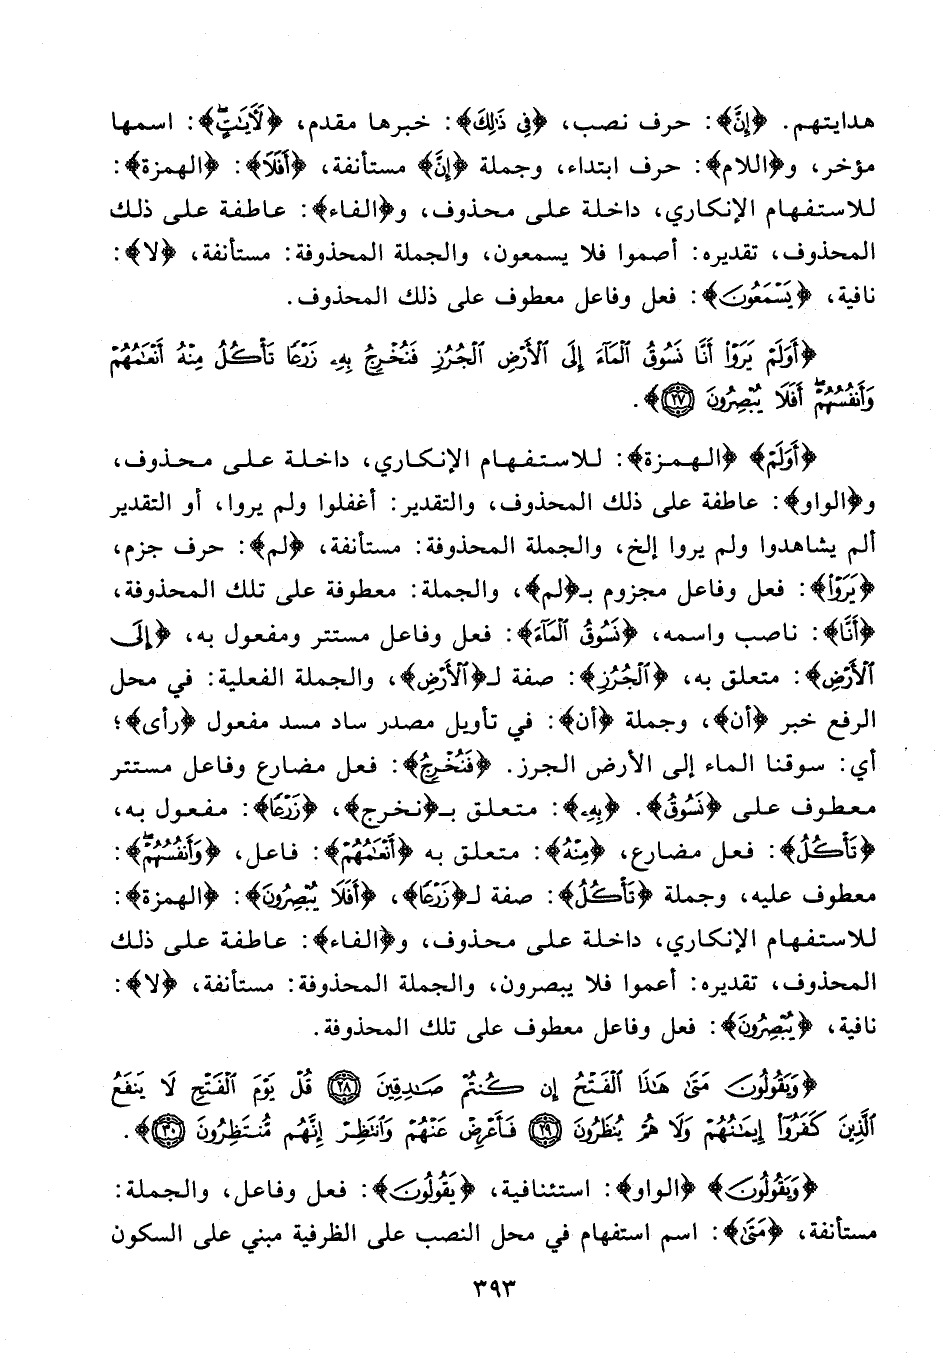 هدايتهم. ﴿إِنَّ﴾: حرف نصب، ﴿فِي ذَٰلِكَ﴾: خبرها مقدم، ﴿لَآيَاتٍ﴾: اسمها
مؤخر، و﴿اللام﴾: حرف ابتداء، وجملة ﴿إِنَّ﴾ مستأنفة، ﴿أَفَلَا﴾: ﴿الهمزة﴾:
للاستفهام الإنكاري، داخلة على محذوف، و﴿الفاء﴾: عاطفة على ذلك
المحذوف، تقديره: أصموا فلا يسمعون، والجملة المحذوفة: مستأنفة، ﴿لا﴾:
نافية، ﴿يَسْمَعُونَ﴾: فعل وفاعل معطوف على ذلك المحذوف.
﴿أَوَلَمْ يَرَوْا أَنَّا نَسُوقُ ٱلْمَآءَ إِلَى ٱلْأَرْضِ ٱلْجُرُزِ فَنُخْرِجُ بِهِۦ زَرْعًا تَأْكُلُ مِنْهُ أَنْعَٰمُهُمْ
وَأَنفُسُهُمْۖ أَفَلَا يُبْصِرُونَ ٢٧﴾.
﴿أَوَلَمْ﴾ ﴿الهمزة﴾: للاستفهام الإنكاري، داخلة على محذوف،
و﴿الواو﴾: عاطفة على ذلك المحذوف، والتقدير: أغفلوا ولم يروا، أو التقدير
ألم يشاهدوا ولم يروا إلخ، والجملة المحذوفة: مستأنفة، ﴿لم﴾: حرف جزم،
﴿يَرَوْا﴾: فعل وفاعل مجزوم بـ﴿لم﴾، والجملة: معطوفة على تلك المحذوفة،
﴿أَنَّا﴾: ناصب واسمه، ﴿نَسُوقُ ٱلْمَآءَ﴾: فعل وفاعل مستتر ومفعول به، ﴿إِلَى
ٱلْأَرْضِ﴾: متعلق به، ﴿ٱلْجُرُزِ﴾: صفة لـ﴿ٱلْأَرْضِ﴾، والجملة الفعلية: في محل
الرفع خبر ﴿أن﴾، وجملة ﴿أن﴾: في تأويل مصدر ساد مسد مفعول ﴿رأى﴾؛
أي: سوقنا الماء إلى الأرض الجرز. ﴿فَنُخْرِجُ﴾: فعل مضارع وفاعل مستتر
معطوف على ﴿نَسُوقُ﴾. ﴿بِهِۦ﴾: متعلق بـ﴿نخرج﴾، ﴿زَرْعًا﴾: مفعول به،
﴿تَأْكُلُ﴾: فعل مضارع، ﴿مِنْهُ﴾: متعلق به ﴿أَنْعَٰمُهُمْ﴾: فاعل، ﴿وَأَنفُسُهُمْۖ﴾:
معطوف عليه، وجملة ﴿تَأْكُلُ﴾: صفة لـ﴿زَرْعًا﴾، ﴿أَفَلَا يُبْصِرُونَ﴾: ﴿الهمزة﴾:
للاستفهام الإنكاري، داخلة على محذوف، و﴿الفاء﴾: عاطفة على ذلك
المحذوف، تقديره: أعموا فلا يبصرون، والجملة المحذوفة: مستأنفة، ﴿لا﴾:
نافية، ﴿يُبْصِرُونَ﴾: فعل وفاعل معطوف على تلك المحذوفة.
﴿وَيَقُولُونَ مَتَىٰ هَٰذَا ٱلْفَتْحُ إِن كُنتُمْ صَٰدِقِينَ ٢٨ قُلْ يَوْمَ ٱلْفَتْحِ لَا يَنفَعُ
ٱلَّذِينَ كَفَرُوٓا إِيمَٰنُهُمْ وَلَا هُمْ يُنظَرُونَ ٢٩ فَأَعْرِضْ عَنْهُمْ وَٱنتَظِرْ إِنَّهُم مُّنتَظِرُونَ ٣٠﴾.
﴿وَيَقُولُونَ﴾ ﴿الواو﴾: استئنافية، ﴿يَقُولُونَ﴾: فعل وفاعل، والجملة:
مستأنفة، ﴿مَتَىٰ﴾: اسم استفهام في محل النصب على الظرفية مبني على السكون
٣٩٣